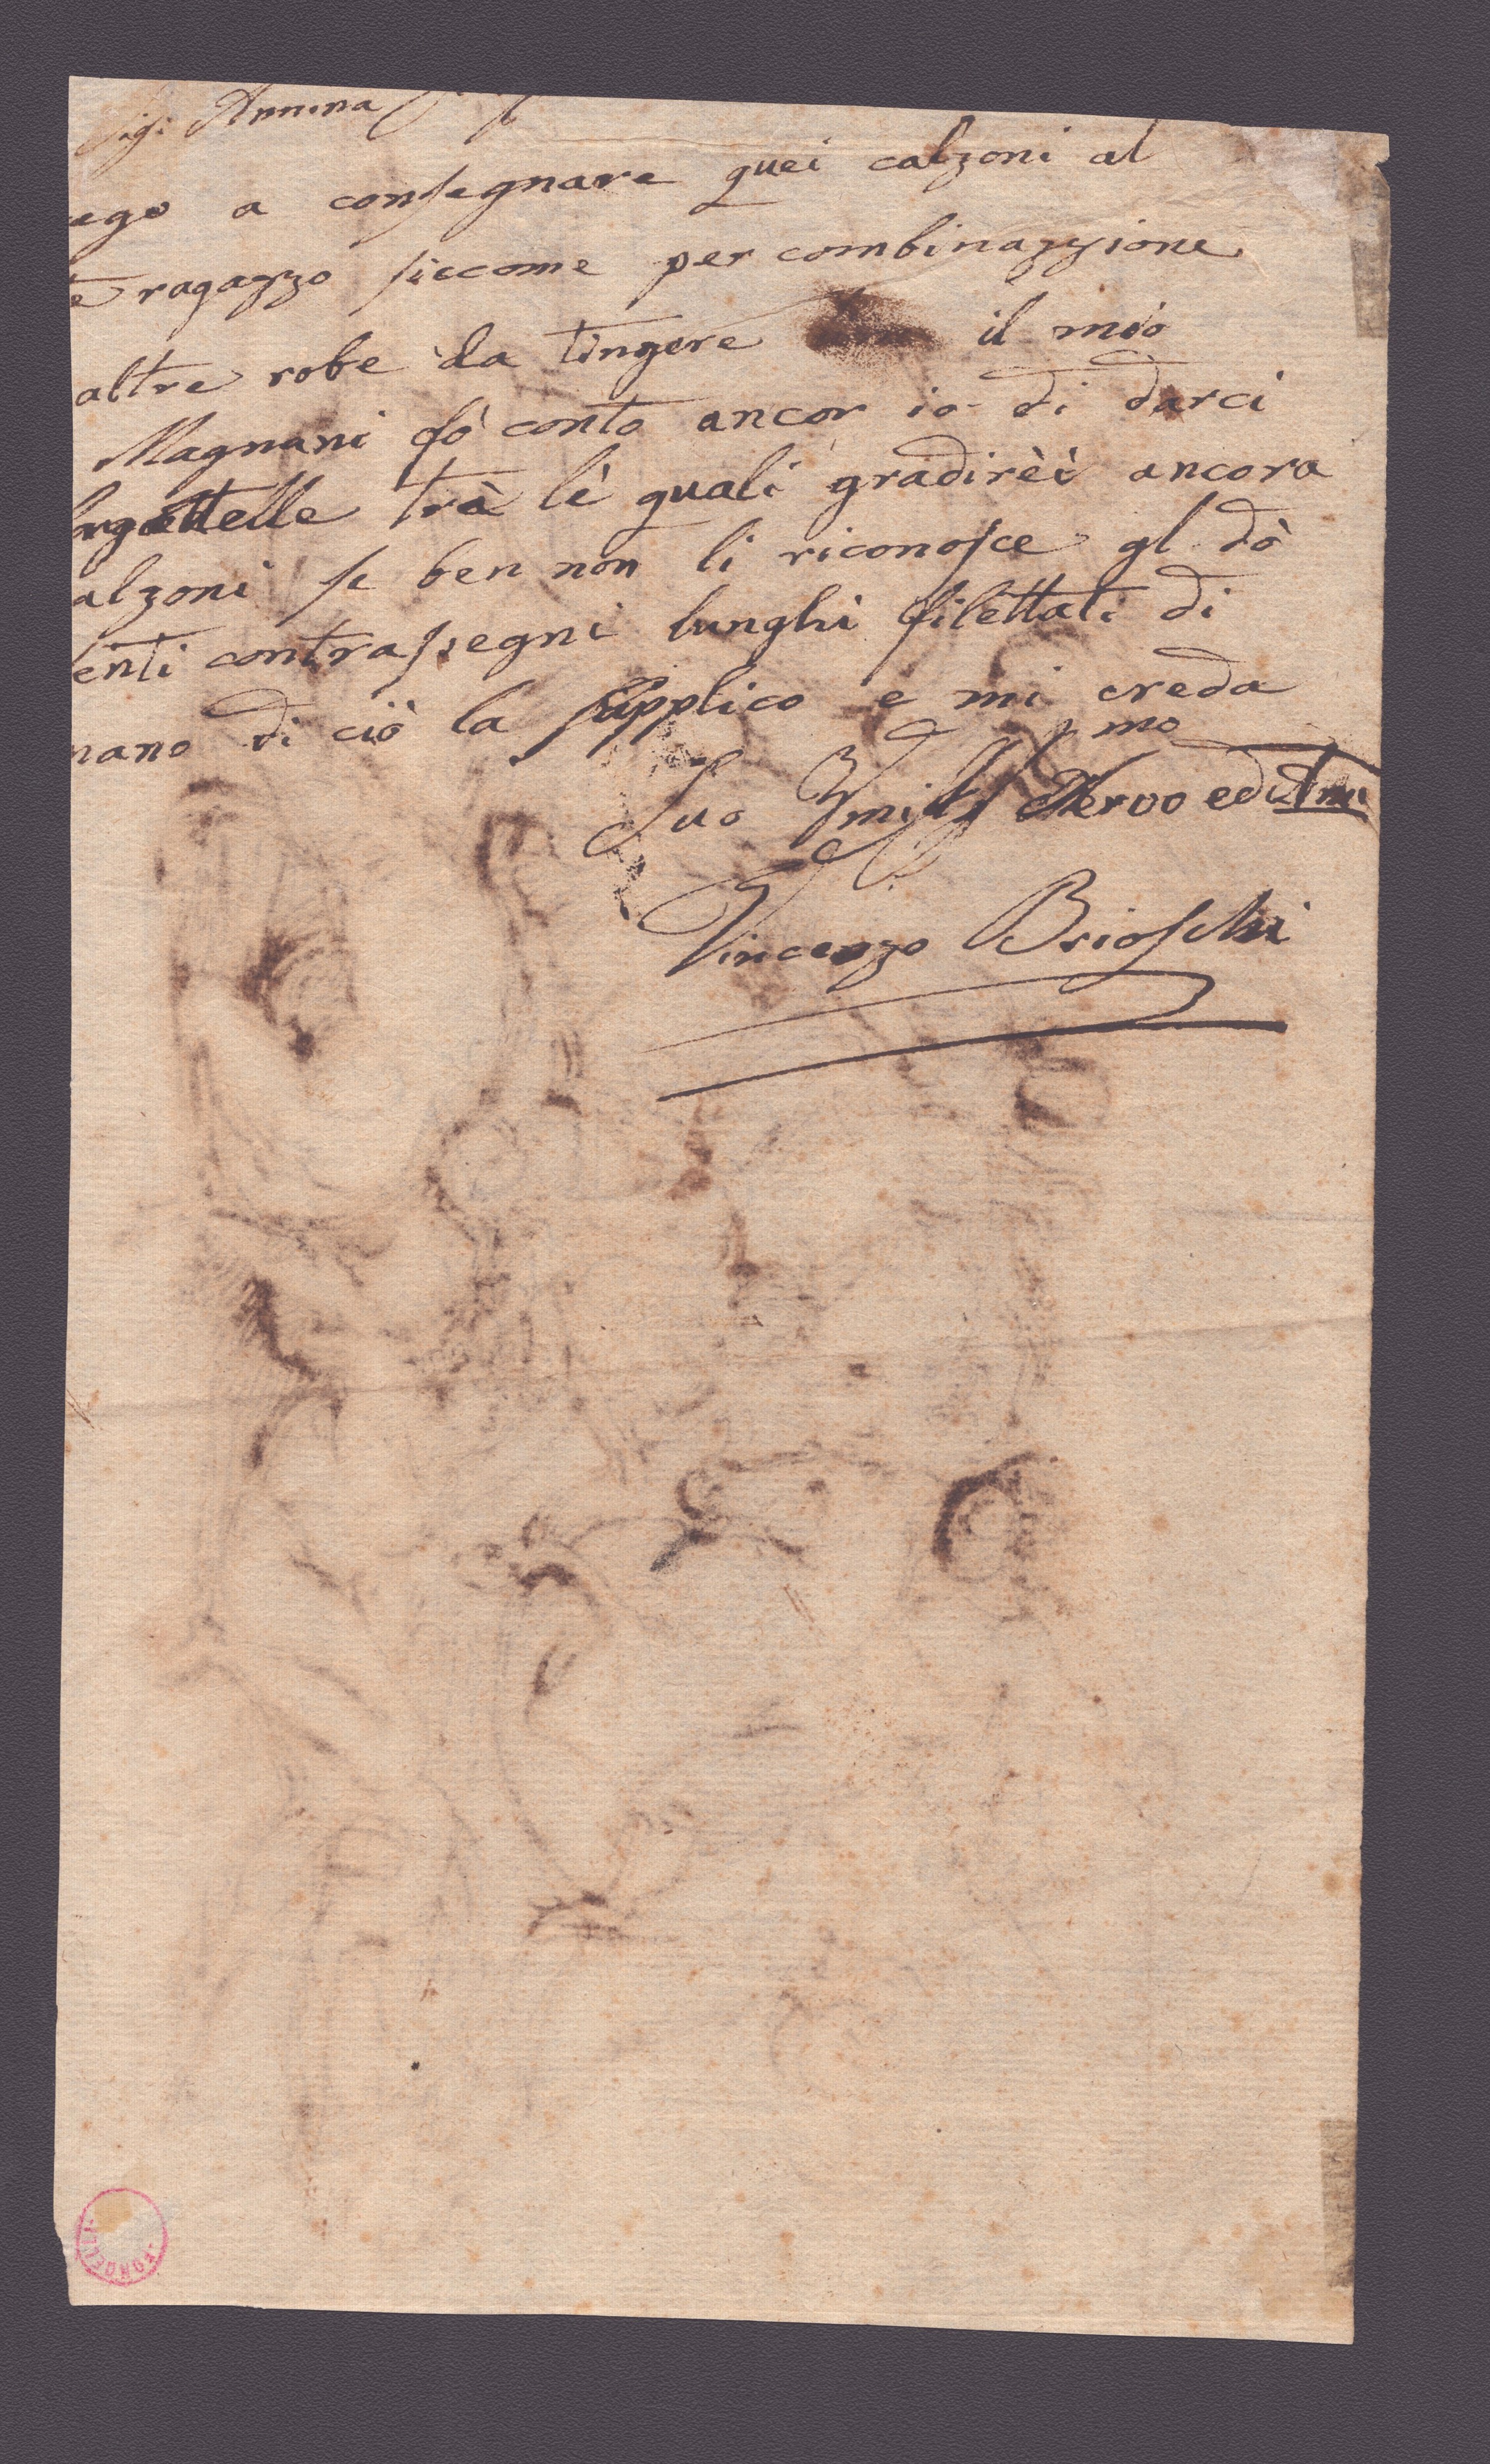 Sig: Annina
ego a consegnare quei calzoni al
te ragazzo siccome per combinazzione
altre robe da tingere il mio
Magnani fò conto ancor io di darci
trà lè quali gradirèi ancora
alzoni se ben non li riconosce gl dò
enti contrasegni lunghi filettati di
nano di ciò la supplico e mi creda
Suo Servo ed
Vincenzo Brioschi